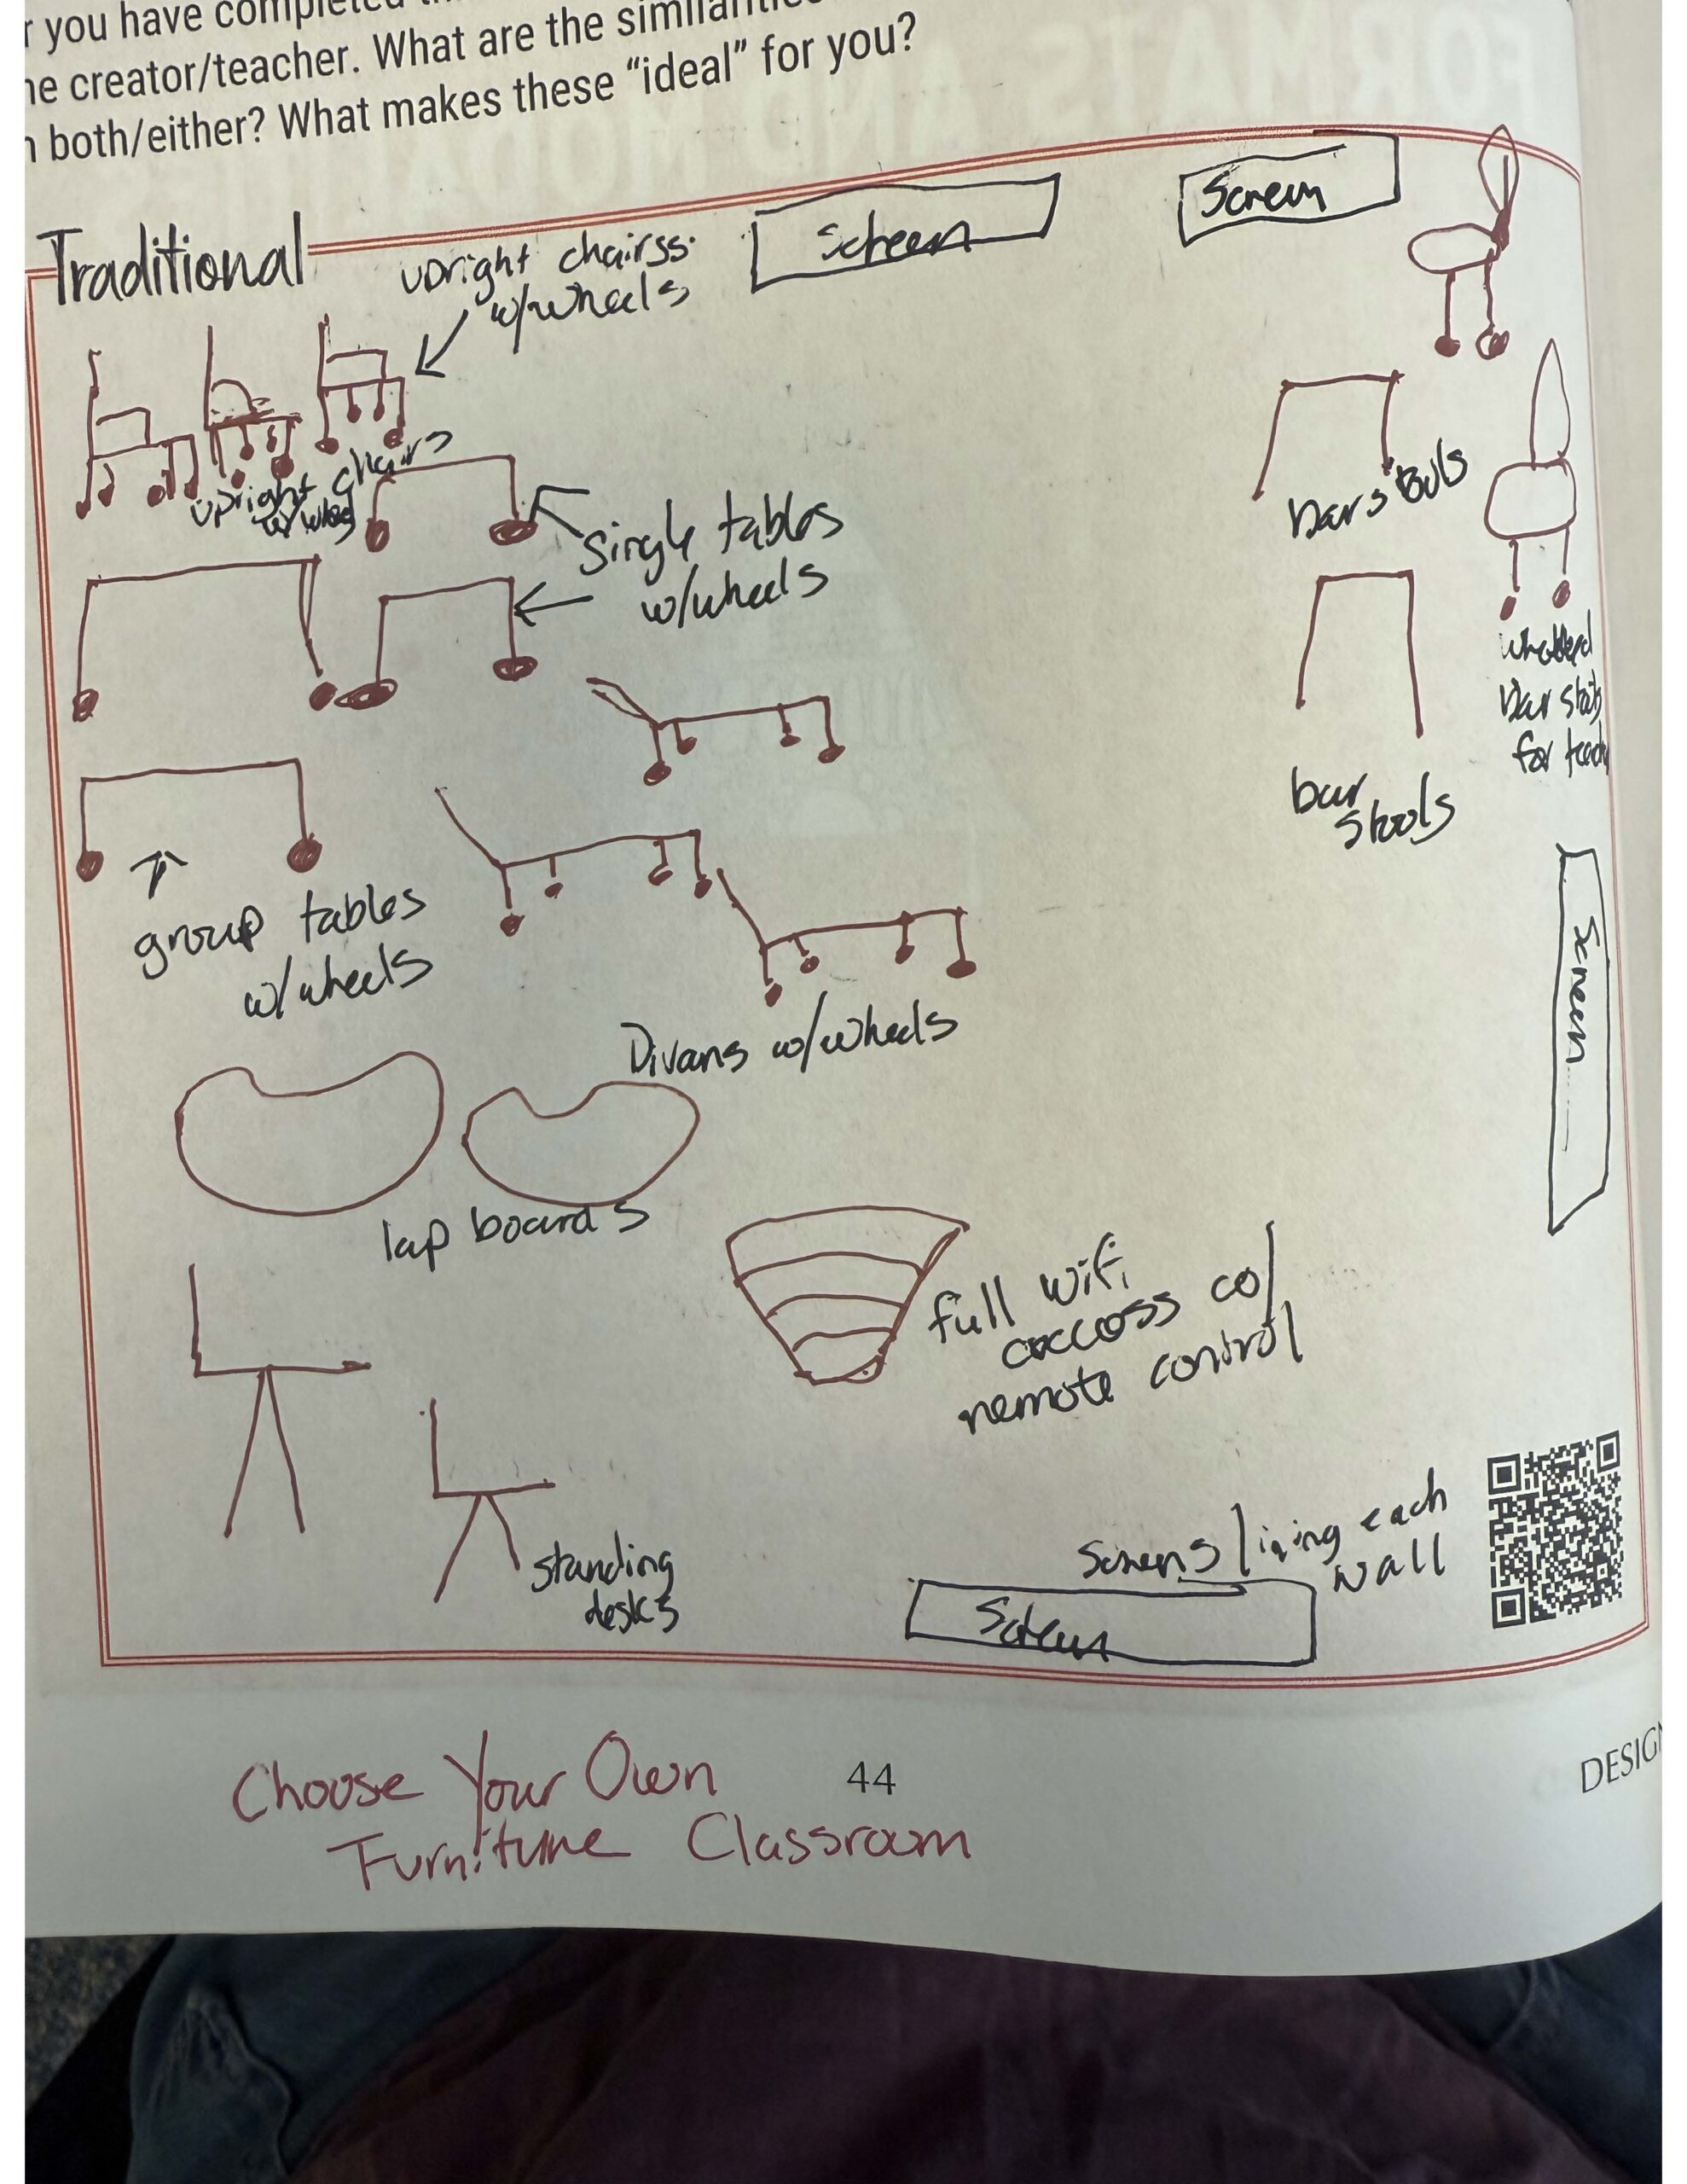 r you have completed
he creator/teacher. What are the similarities
n both/either? What makes these “ideal” for you?
Traditional
upright chairss
w/wheels
Screen
Screen
upright chairs
w/
Single tables
w/wheels
bars
wheeled
bar stools
for
bar
stools
group tables
w/wheels
Divans w/wheels
Screen
lap boards
full wifi
access w/
remote control
standing
desks
Screens lining each
wall
Screen
Choose Your Own
Furniture Classroom
44
DESIG